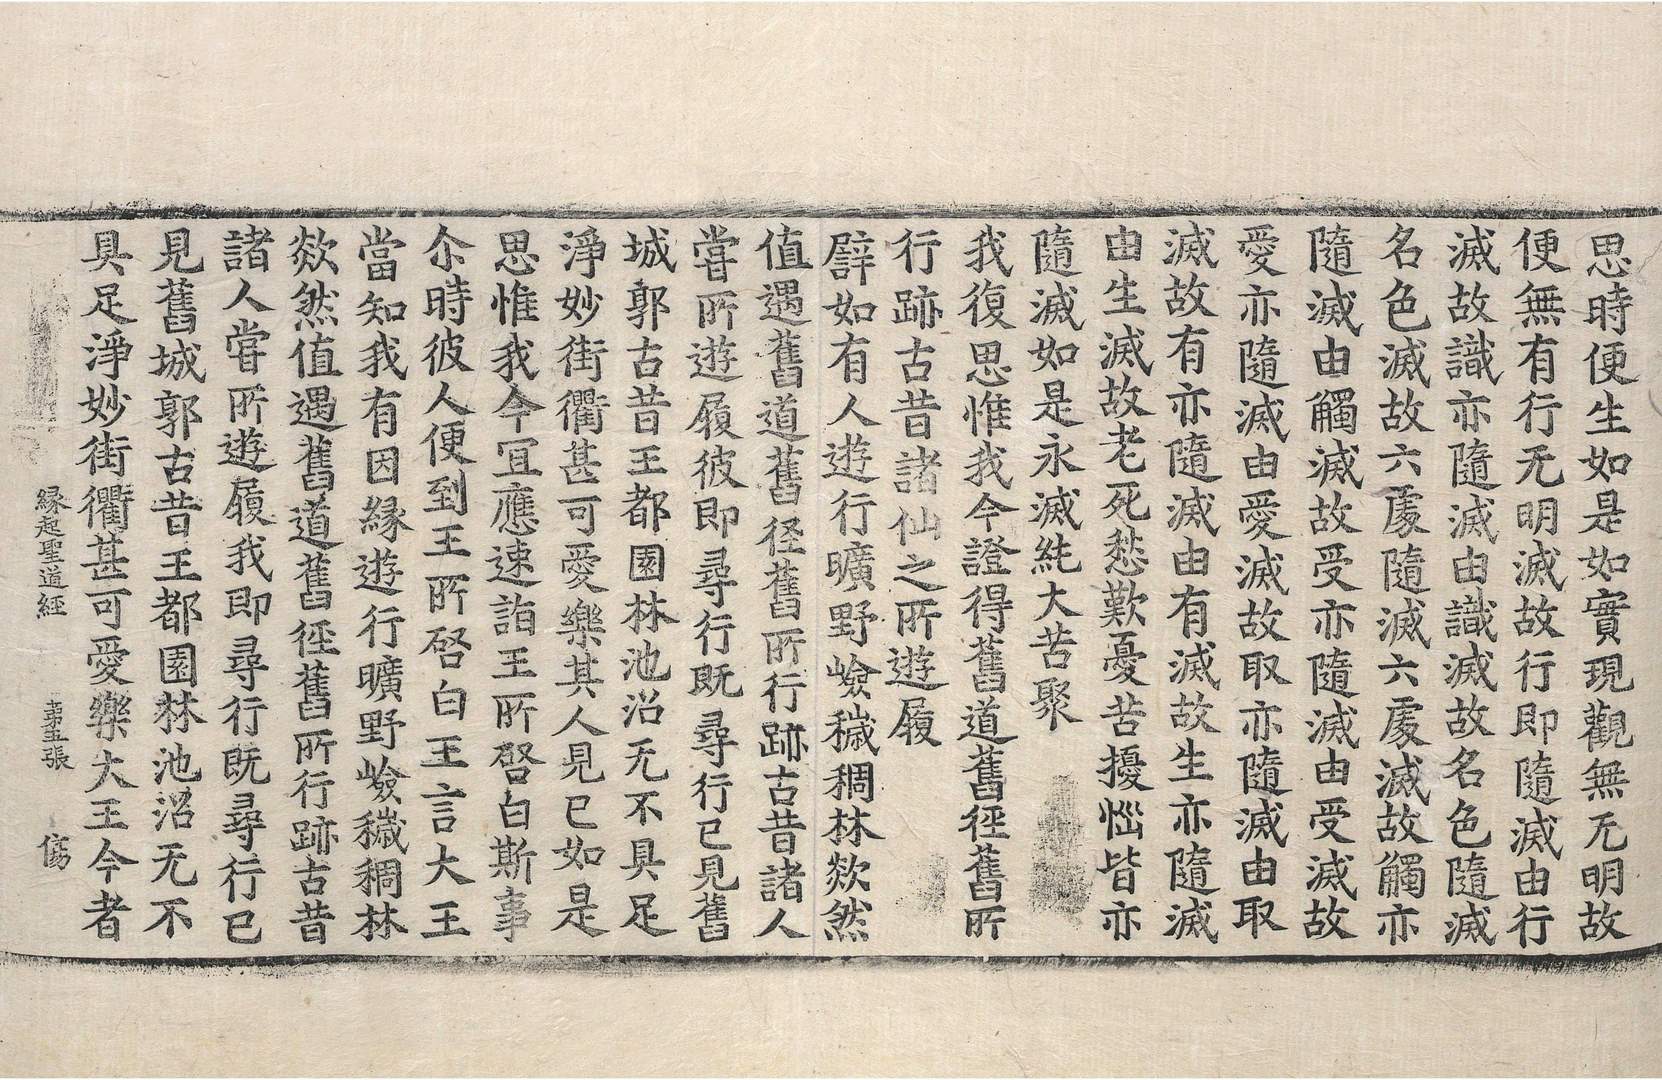 思時便生如是如實現觀無无明故
便無有行无明滅故行即隨滅由行
滅故識亦隨滅由識滅故名色隨滅
名色滅故六處隨滅六處滅故觸亦
隨滅由觸滅故受亦隨滅由受滅故
愛亦隨滅由愛滅故取亦隨滅由取
滅故有亦隨滅由有滅故生亦隨滅
由生滅故老死愁歎憂苦擾惱皆亦
隨滅如是永滅純大苦聚
我復思惟我今證得舊道舊徑舊所
行跡古昔諸仙之所遊履
譬如有人遊行曠野嶮穢稠林欻然
值遇舊道舊径舊所行跡古昔諸人
嘗所遊履彼即尋行既尋行已見舊
城郭古昔王都園林池沼无不具足
淨妙街衢甚可愛樂其人見已如是
思惟我今冝應速詣王所啓白斯事
尒時彼人便到王所启白王言大王
當知我有因緣遊行曠野嶮穢稠林
欻然值遇舊道舊徑舊所行跡古昔
諸人嘗所遊履我即尋行既尋行已
見舊城郭古昔王都園林池沼无不
具足淨妙街衢甚可愛樂大王今者
緣起聖道經 苐五張 傷